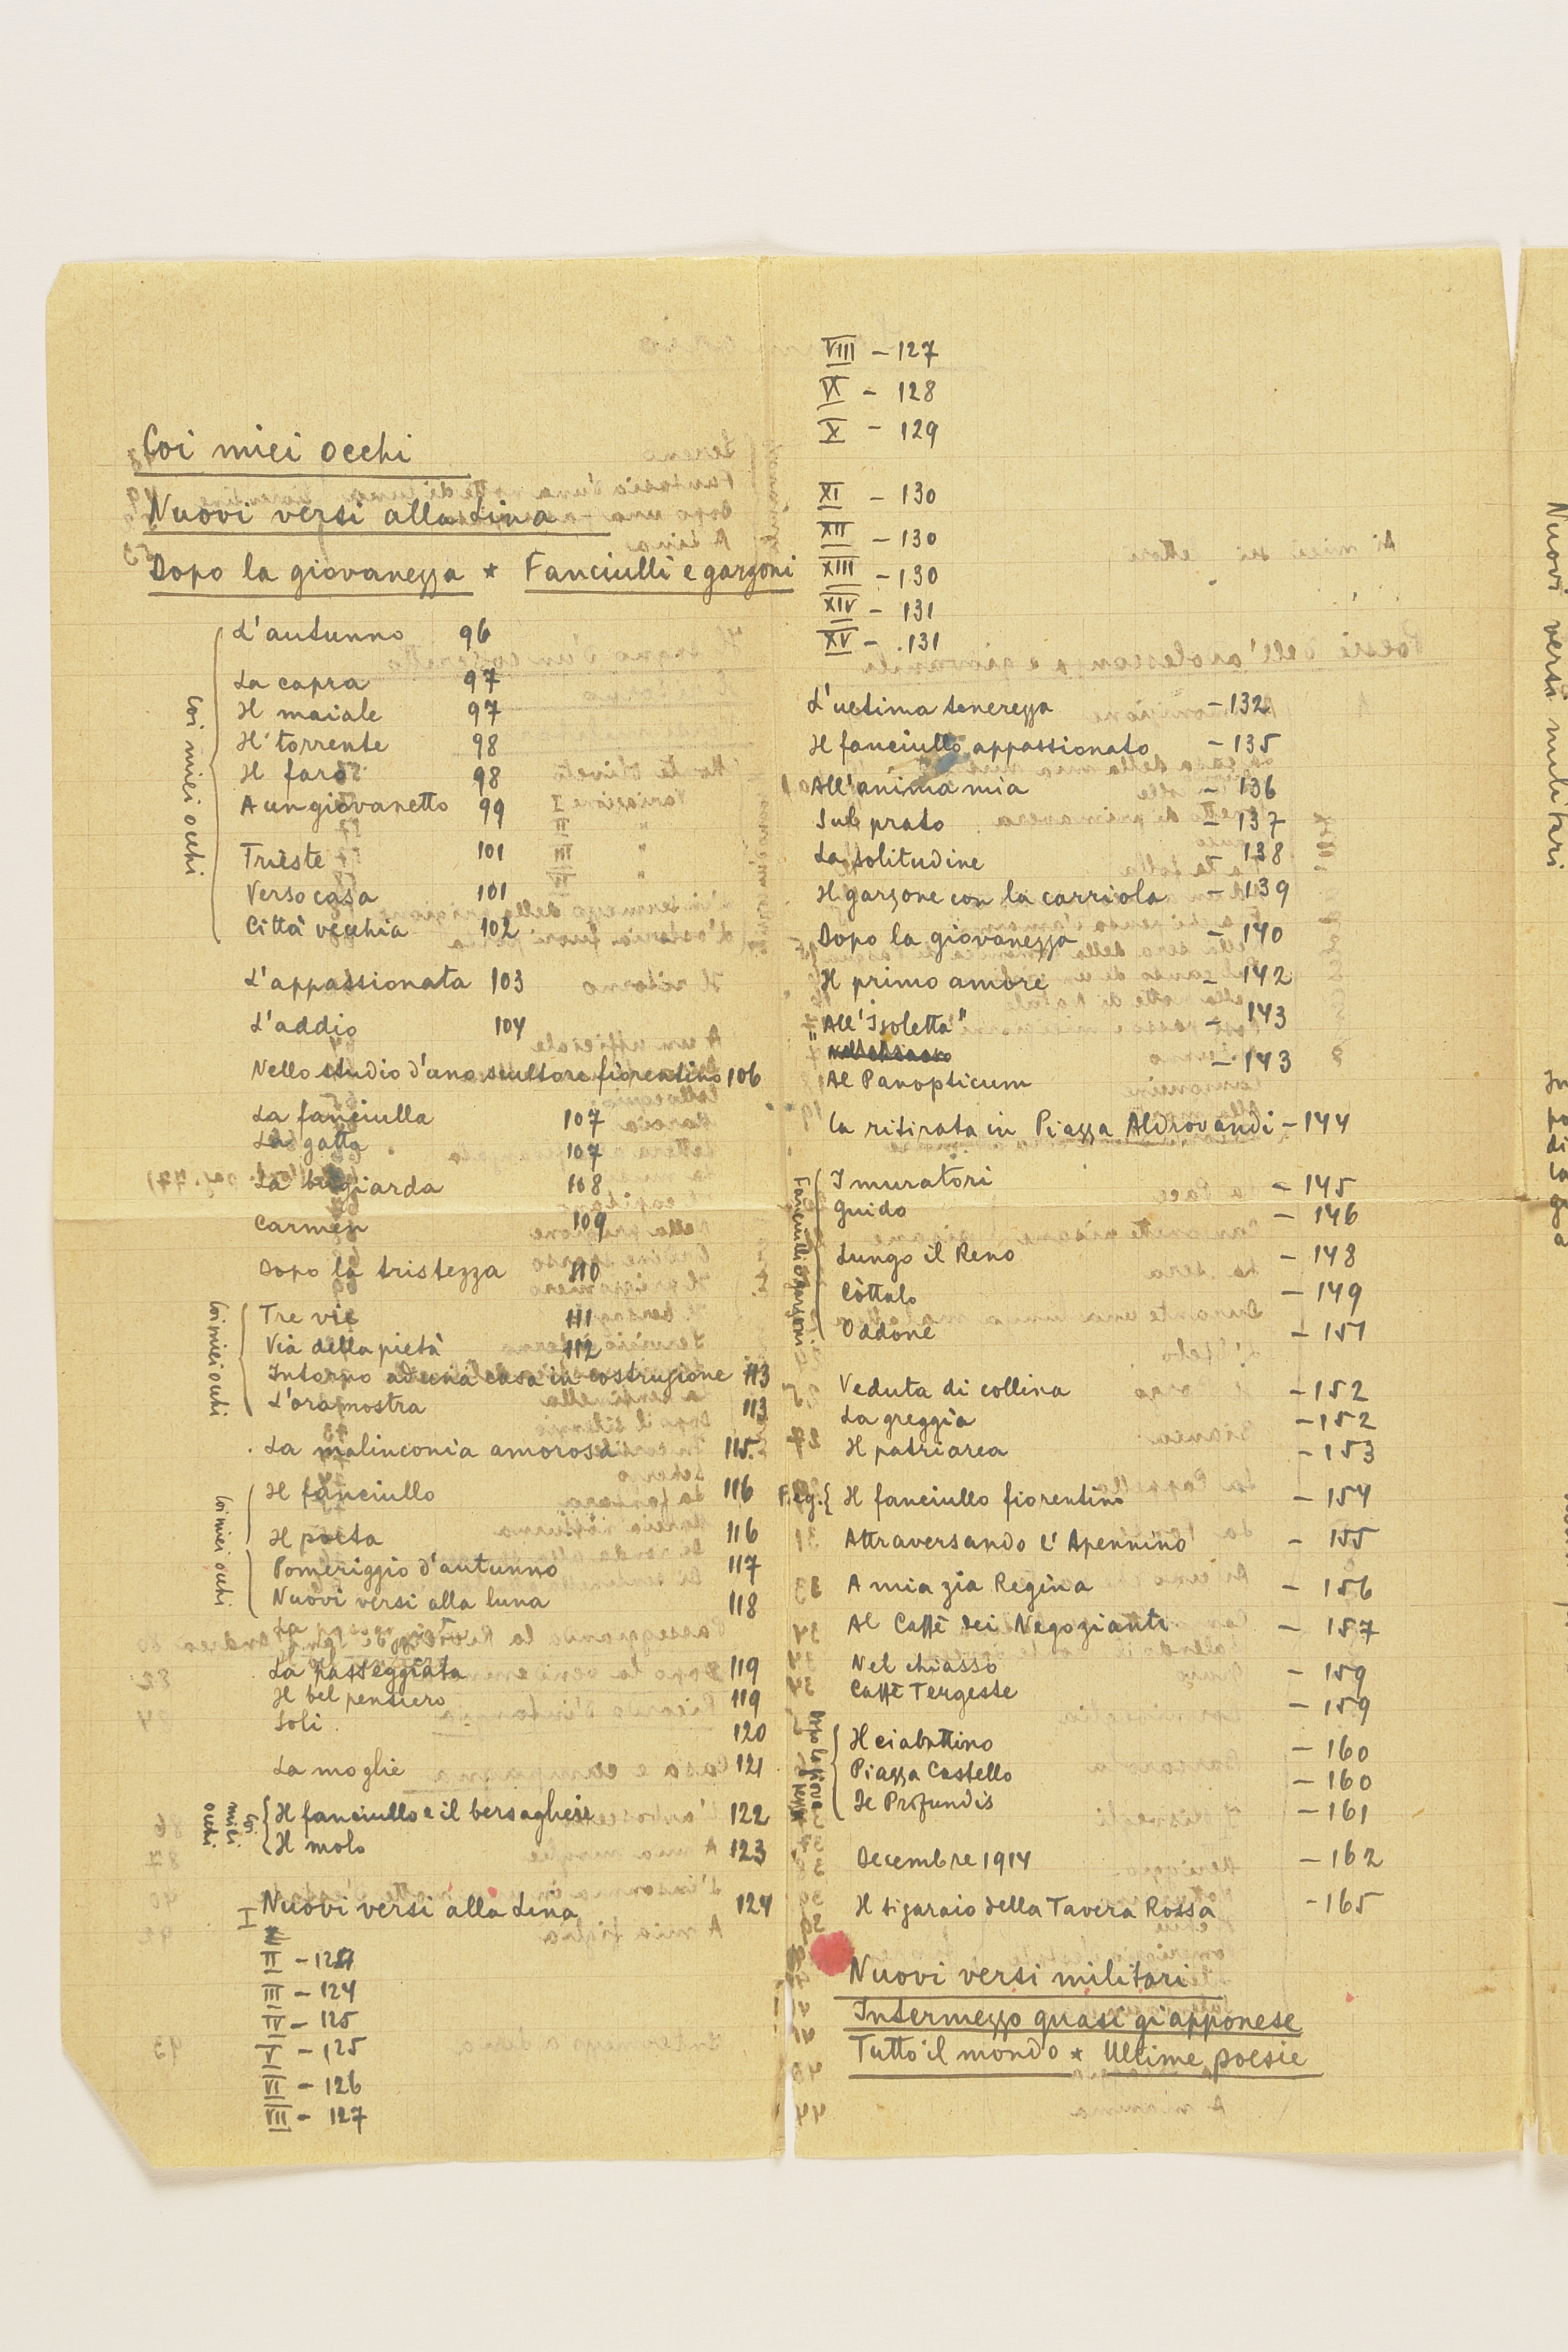 Coi miei occhi
Nuovi versi alla Lina
Dopo la giovanezza * Fanciulli e garzoni
Coi miei occhi
L'autunno 96
La capra 97
Il maiale 97
Il torrente 98
Il faro 98
A un giovanetto 99
Trieste 101
Verso casa 101
Città vecchia 102
L'appassionata 103
L'addio 104
Nello studio d'uno scultore fiorentino 106
La fanciulla 107
La gatta 107
La bugiarda 108
Carmen 109
Dopo la tristezza 110
Coi miei occhi
Tre vie 111
Via della pietà 112
Intorno ad una casa in costruzione 113
L'ora nostra 113
La malinconia amorosa 115.
Coi miei occhi
Il fanciullo 116
Il poeta 116
Pomeriggio d'autunno 117
Nuovi versi alla luna 118
La
La Passeggiata 119
Il bel pensiero 119
Soli 120
La moglie 121
Coi miei occhi
Il fanciullo e il bersagliere 122
Il molo 123
I Nuovi versi alla Lina 124
II - 124
III - 124
IV - 125
V - 125
VI - 126
VII - 127
VIII - 127
IX - 128
X - 129
XI - 130
XII - 130
XIII - 130
XIV - 131
XV - 131
L'ultima tenerezza - 132
Il fanciullo appassionato - 135
All'anima mia - 136
Sul prato - 137
La solitudine - 138
Il garzone con la carriola - 139
Dopo la giovanezza - 140
Il primo amore - 142
All'"Isoletta" - 143
- 143
Al Panopticum
La ritirata in Piazza Aldrovandi - 144
Fanciulli e garzoni
I muratori - 145
Guido - 146
Lungo il Reno - 148
Còttalo - 149
Oddone - 151
Veduta di collina - 152
La greggia - 152
Il patriarca - 153
F. e g. { Il fanciullo fiorentino - 154
Attraversando l'Apennino - 155
A mia zia Regina - 156
Al Caffè dei Negozianti - 157
Nel chiasso - 159
Caffè Tergeste - 159
Dopo la giovanezza
Il ciabattino - 160
Piazza Castello - 160
De Profundis - 161
Decembre 1914 - 162
Il sigaraio della Tavera Rossa - 165
Nuovi versi militari
Intermezzo quasi giapponese
Tutto il mondo * Ultime poesie
Nuovi versi militari.